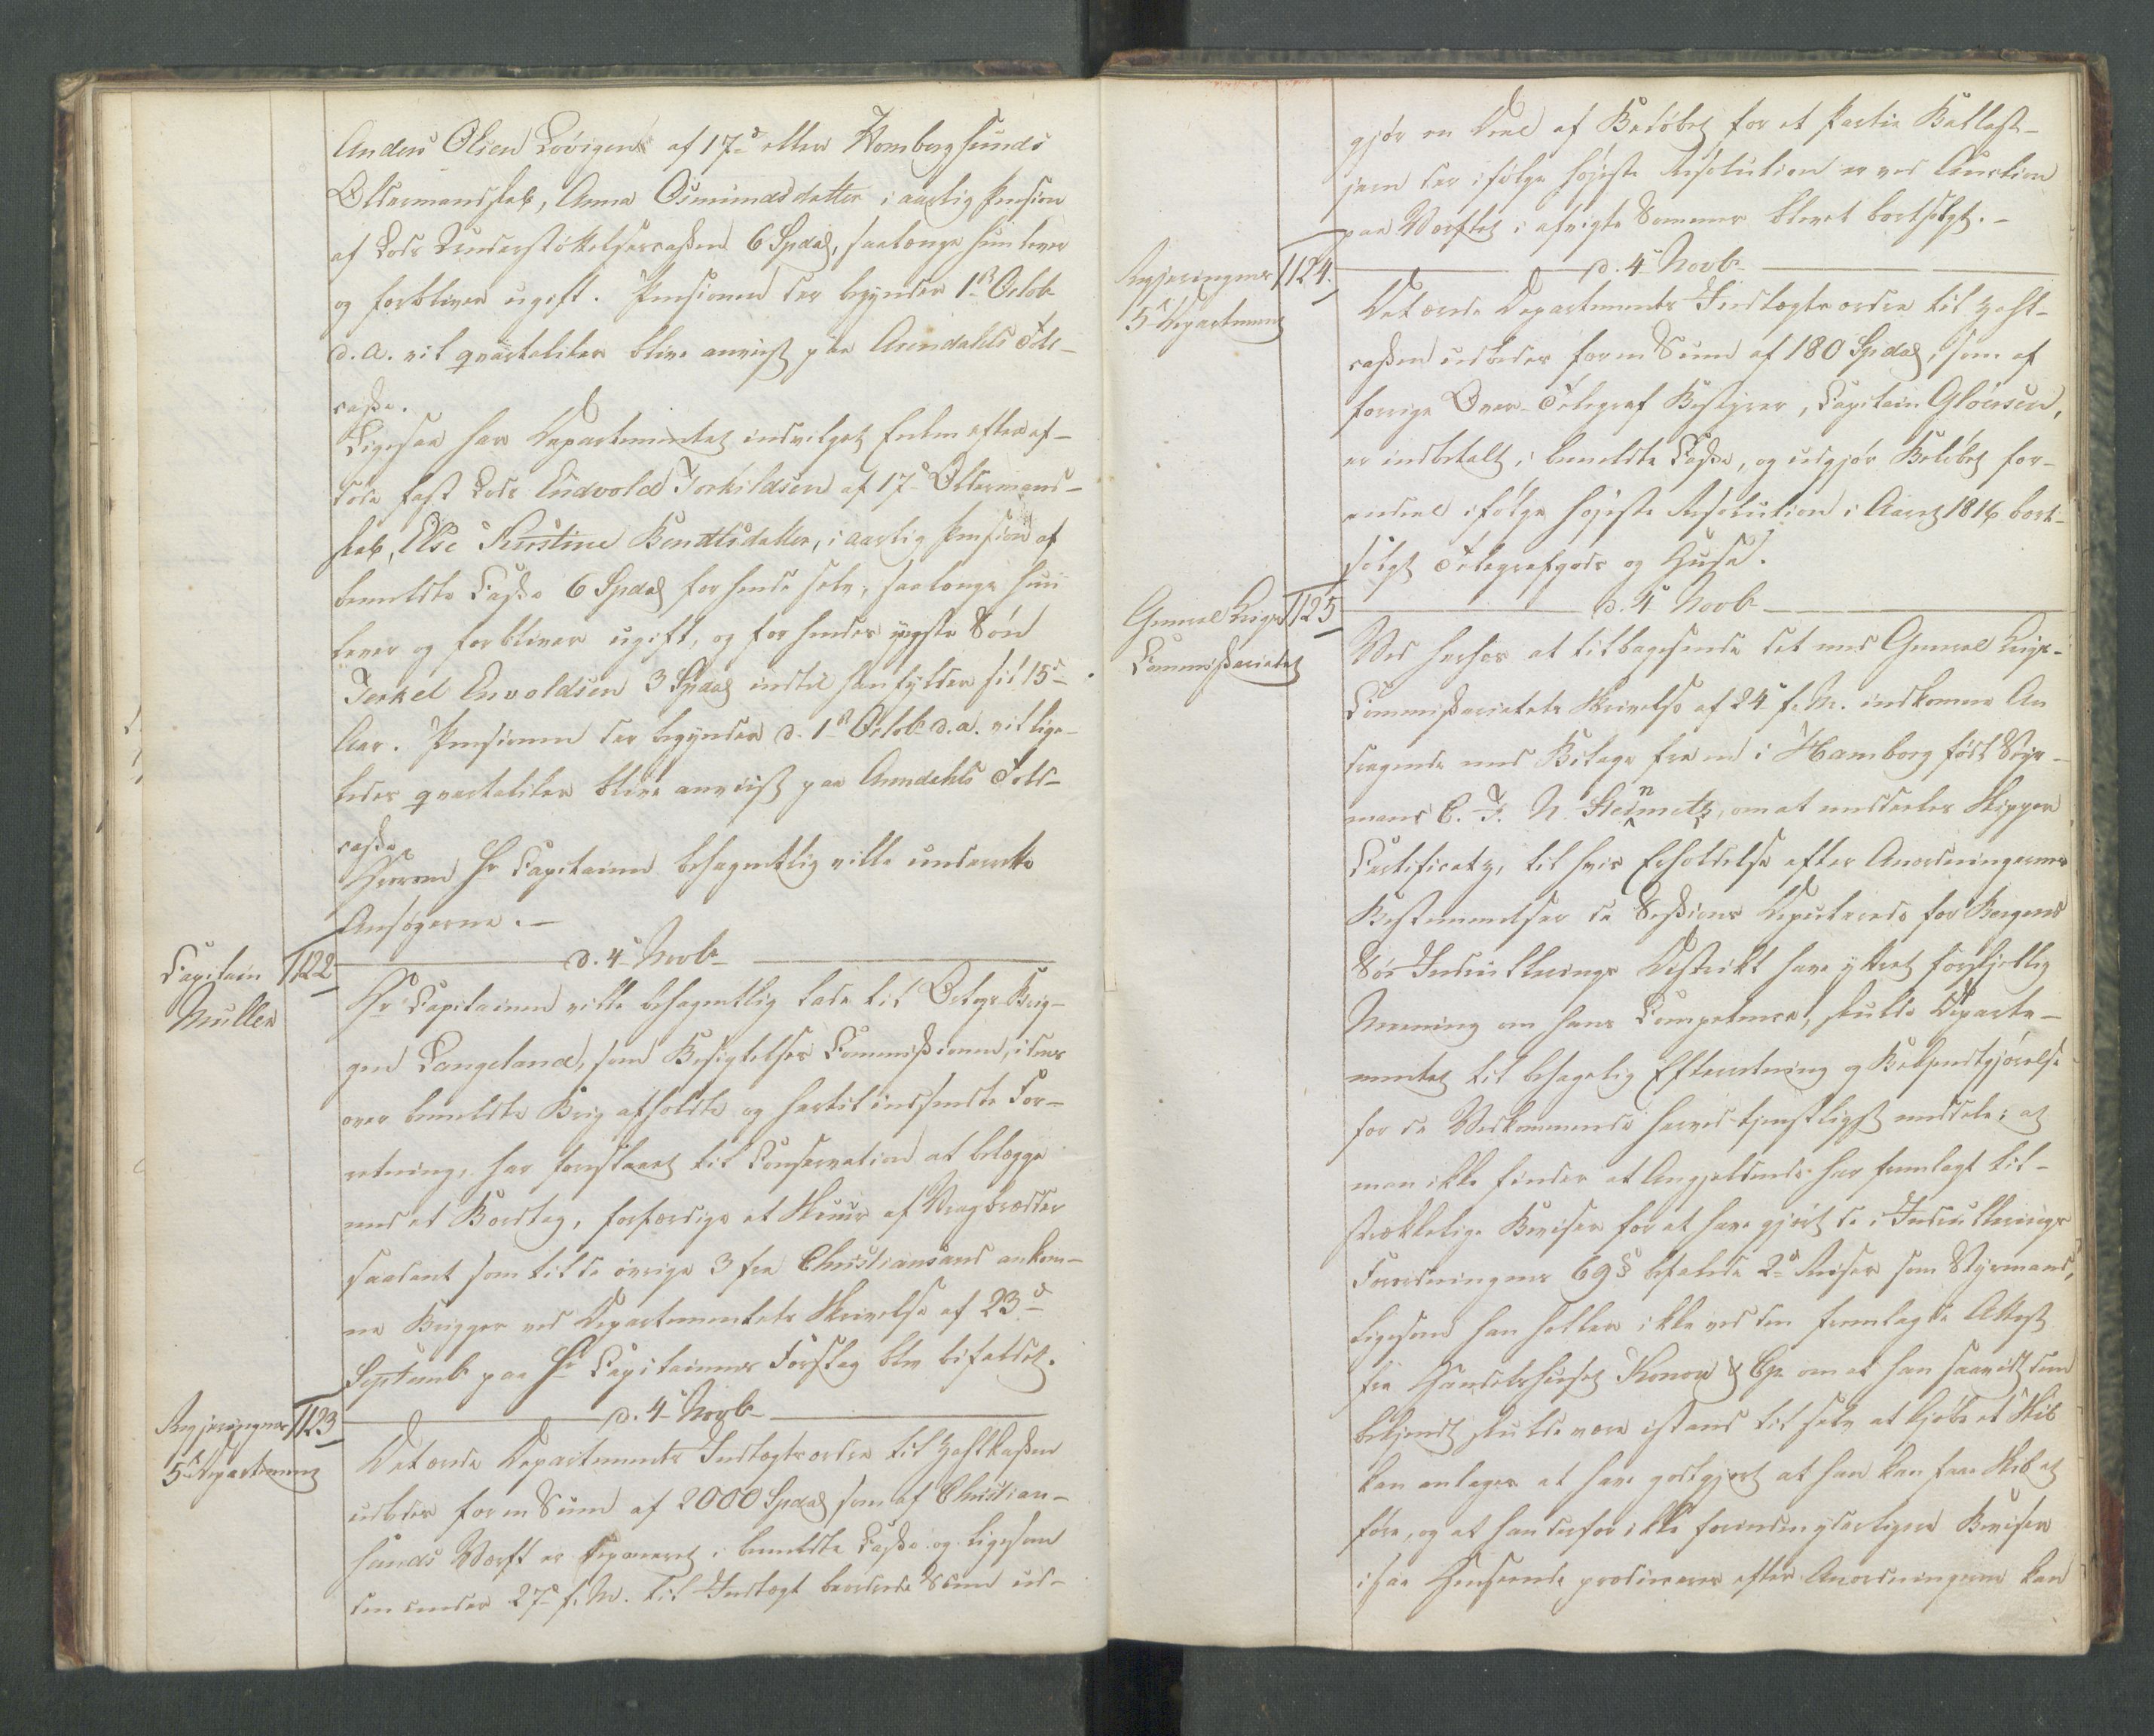 Anders Olsen Lövigen af 17d eller Homborgsunds
Oldermandskab, Anna Osmundsdatter i aarlig Pension
af Lods Understöttelsescassen 6 Spdlr, saalænge hun lever
og forbliver ugift. Pensionen der begynder 1ste Octobr
d. A. vil qvartaliter blive anviist paa Arendahls Told-
casse.
Ligesaa har Departementet indvilget Enken efter af-
döde fast Lods Endvold Torkildsen af 17d Oldermand-
skab, Else Kirstine Bendtsdatter, i aarlig Pension af
bemeldte Casse 6 Spdlr for hende selv, saalænge hun
lever og forbliver ugift, og for hendes yngste Sön
Terkel Envoldsen 3 Spdlr indtil han fylder sit 15de
Aar. Pensionen der begynder d. 1ste Octobr d. A. vil lige-
ledes qvartaliter blive anviist paa Arendahls Told-
casse.
Hvorom Hr Capitainen behageligen ville underrette
Ansögerne. —
d. 4de Novbr
Capitain
Müller
1122
Hr Capitainen ville behageligen lade til Orlogs Brig-
gen Langeland, som Besigtelses Commissionen, i dens
over bemeldte Brig afholdte og hertil indsendte For-
retning, har foreslaaet til Conservation at belægge
med et Bordtag, forfærdige et Skuur af Vragbrædder
saadant som til de övrige 3 fra Christiansand ankom-
ne Brigger ved Departementets Skrivelse af 23de
Septembr paa Hr Capitainens Forslag blev bifaldet.
d. 4de Novbr
Regjeringens
5te Departement
1123
Det ærede Departements Indtægtsordre til Zahlkassen
udbedes for en Sum af 2000 Spdlr som af Christian-
sands Værft er deponeret i bemeldte Casse og ligesom
den under 27de f. M. til Indtægt beordrede Sum ud-
gjör en Deel af Belöbet for et Partie Ballast-
jern der ifölge höjeste Resolution er ved Auction
paa Værftet i afvigte Sommer blevet bortsolgt. —
d. 4de Novbr
Regjeringens
5te Departement
1124.
Det ærede Departements Indtægtsordre til Zahl-
cassen udbedes for en Sum af 180 Spdlr, som af
forrige Over-Telegraf Bestyrer, Capitain Glöersen,
er indbetalt i bemeldte Casse, og udgjör Belöbet for
endeel ifölge höjeste Resolution i Aaret 1816 bort-
solgt Telegrafgods og Huse.
d. 4de Novbr
General Krigs
Commissariatet
1125
Ved herhos at tilbagesende det med General Krigs-
Commissariatets Skrivelse af 24de f. M. indkomne An
dragende med Bilage fra en i Hamborg född Styr-
mand C. F. N. Steinmetz, om at meddeles Skipper
Certificat, til hvis Erholdelse efter Anordningernes
Bestemmelser de Sessions Deputerede for Bergens
Söe Indrullerings Distrikt have yttret forskjellig
Meening om hans Competence, skulde Departe-
mentet til behagelig Efterretning og Bekjendtgjörelse
for de Vedkommende herved tjenstligst meddele: at
man ikke finder at Angjeldende har fremlagt til-
strækkelige Beviser for at have gjort de i Indrullerings
Forordningens 69§ befalede 2de Reiser som Styrmand,
ligesom han heller ikke ved den fremlagde Attest
fra Handelshuset Konow & Cp. om at han saavidt dem
bekjendt skulde være istand til selv at kjöbe et Skib
kan antages at have godtgjort at han kan faae Skib at
före, og at han derfor ikke forinden yderligere Beviser
i saa Henseende produceres efter Anordningerne kan